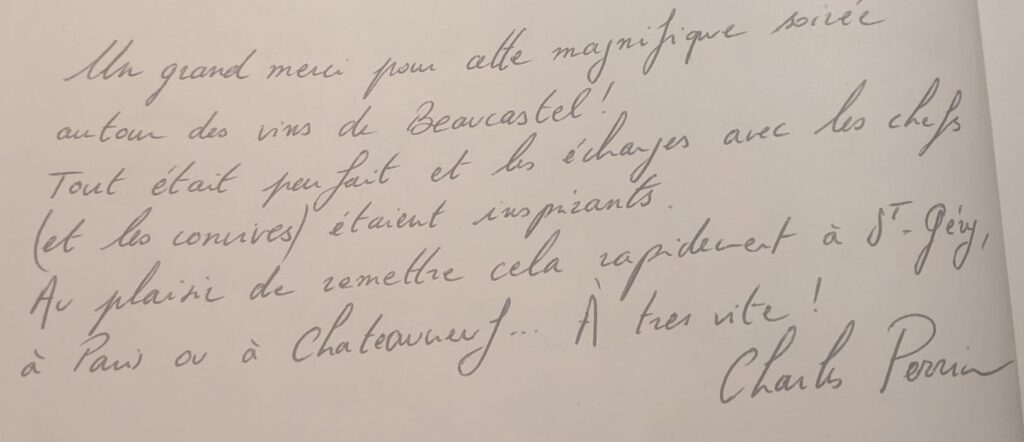 Un grand merci pour cette magnifique soirée
autour des vins de Beaucastel !
Tout était parfait et les échanges avec les chefs
(et les convives) étaient inspirants.
Au plaisir de remettre cela rapidement à St-Géry,
à Paris ou à Chateauneuf... À tres vite !
Charles Perrin